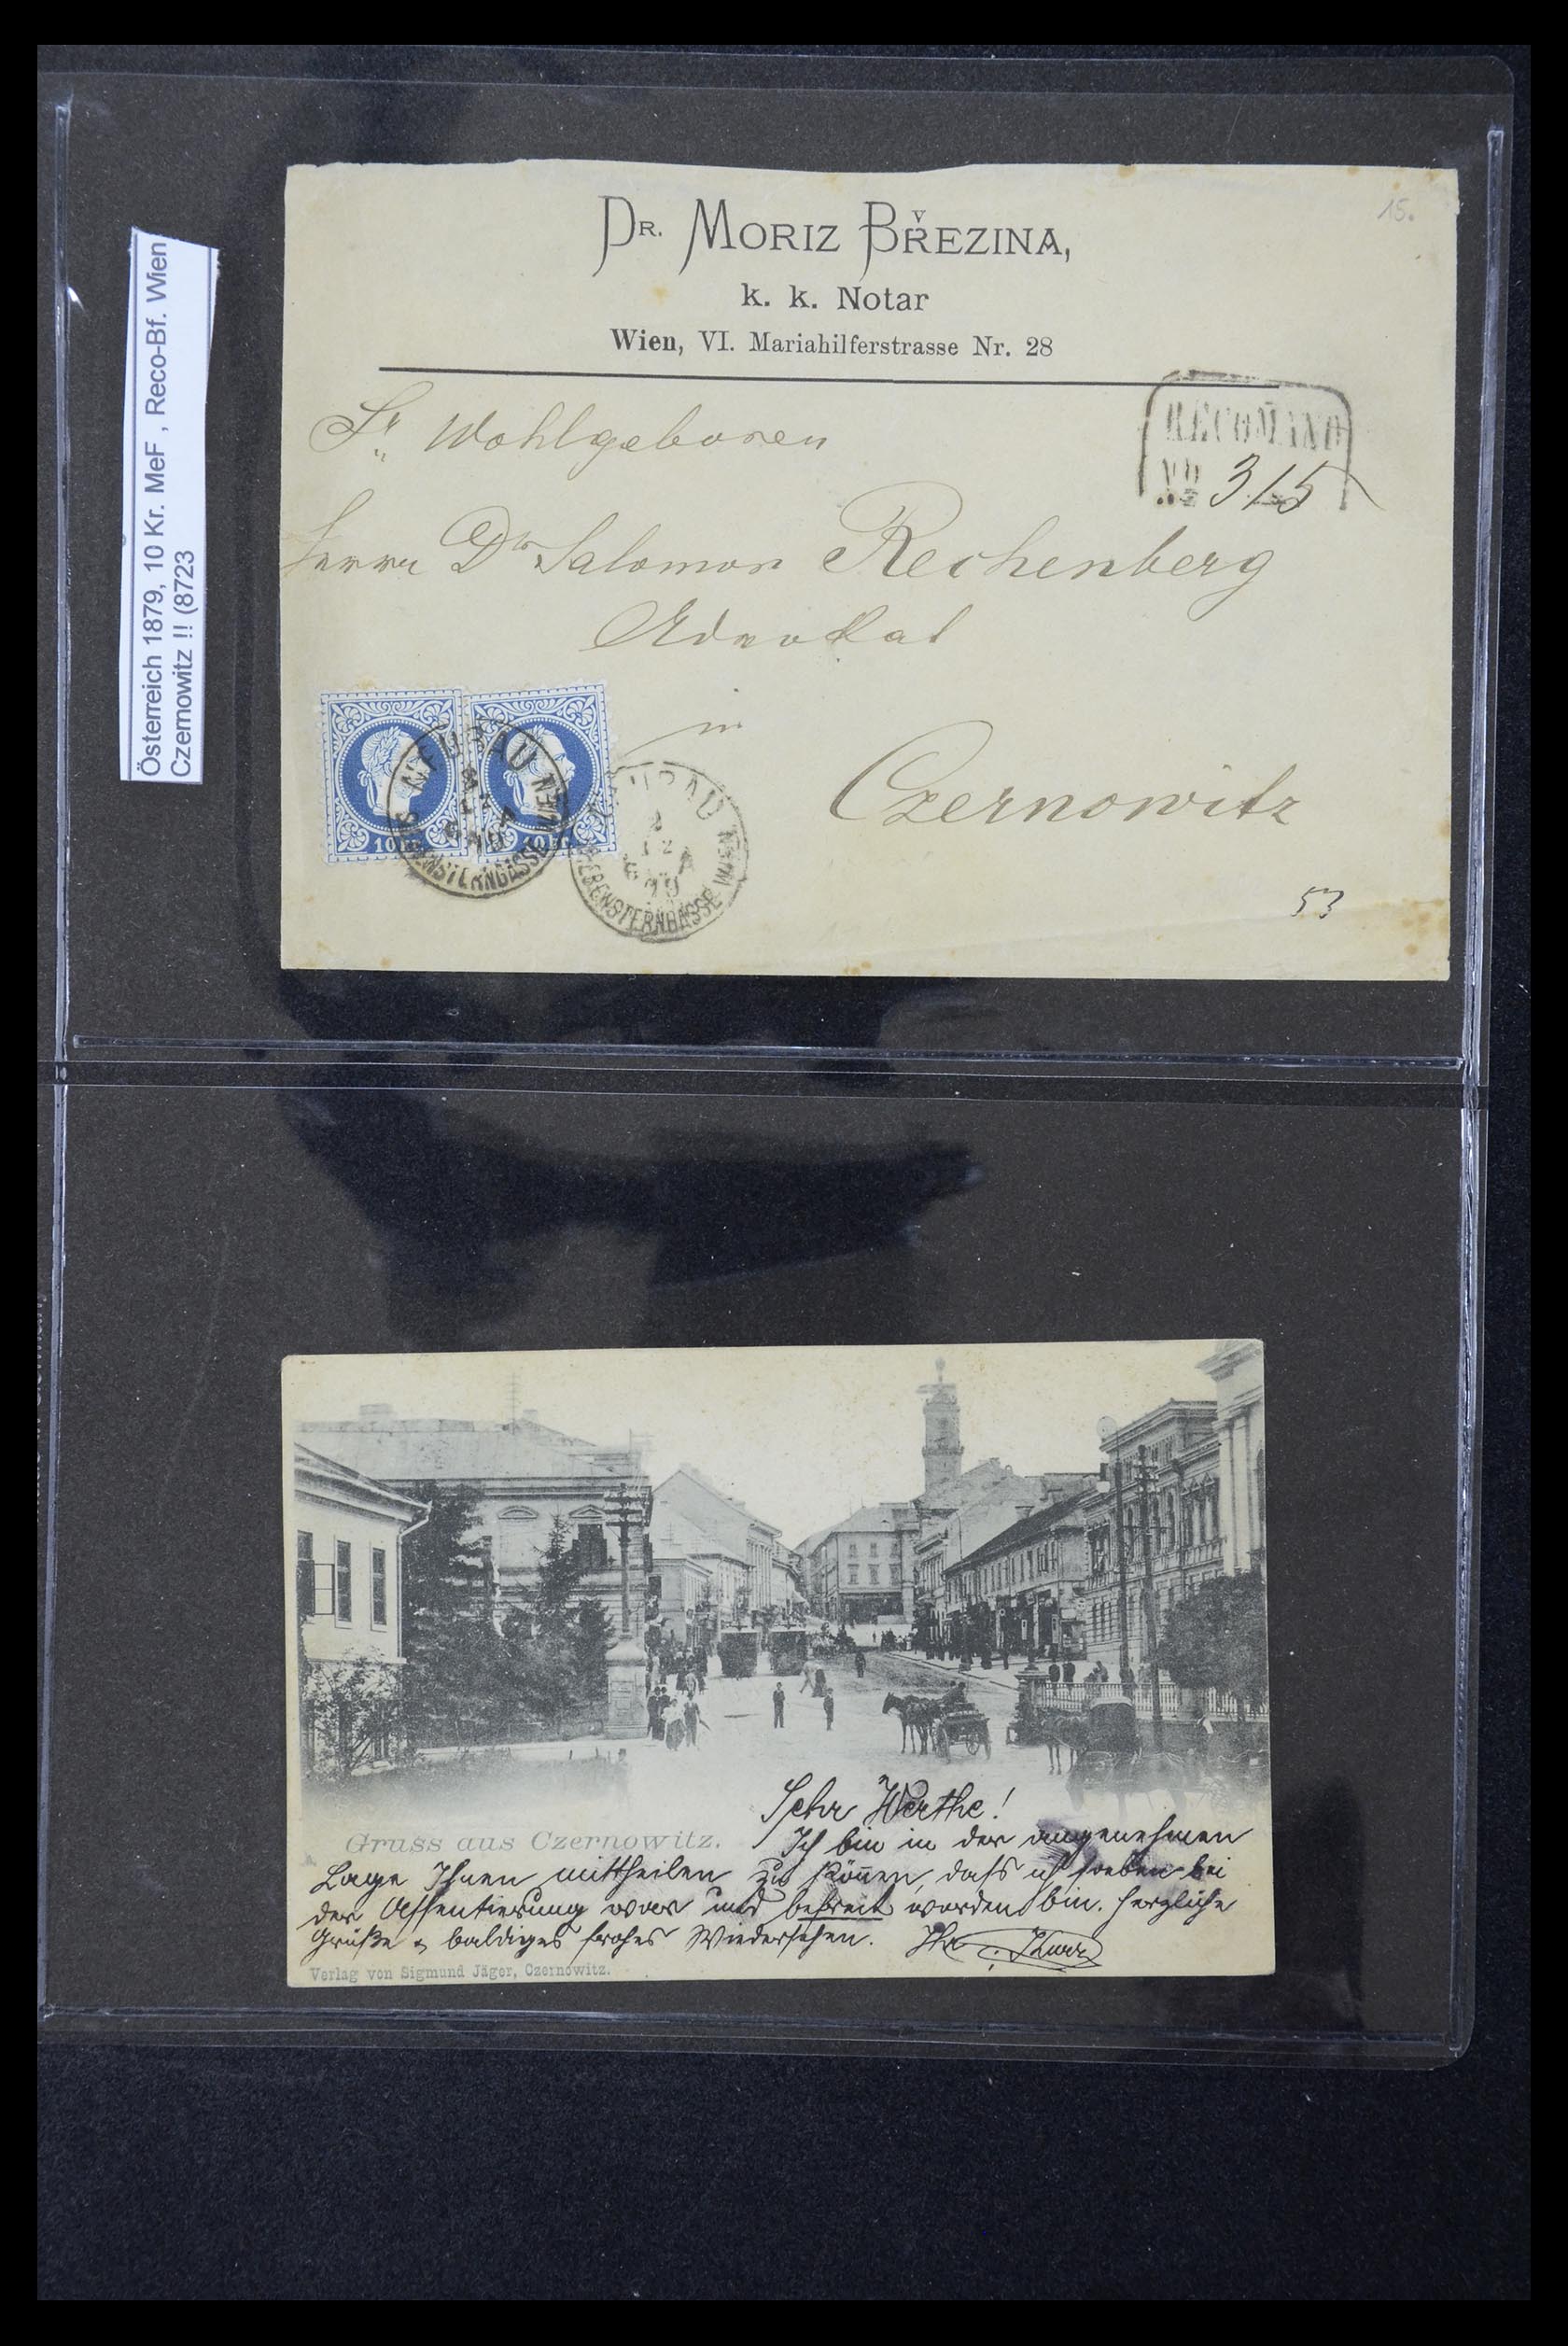 Österreich 1879, 10 Kr. MeF , Reco-Bf. Wien
Czernowitz !! (8723
15.
DR. MORIZ BŘEZINA,
k. k. Notar
Wien, VI. Mariahilferstrasse Nr. 28
RECOMAND
No 315
Sr. Wohlgeboren
Herrn Dr. Salomon Rechenberg
Advokat
in
Czernowitz
10 10
NEUBAU WIEN
SIEBENSTERNGASSE
NEUBAU WIEN
SIEBENSTERNGASSE
53
Sehr Werthe!
Gruss aus Czernowitz.
Ich bin in der angenehmen
Lage Ihnen mittheilen zu können, dass ich soeben bei
der Assentierung war und befreit worden bin. Herzliche
Grüße & baldiges frohes Wiedersehen. Ihr
Verlag von Sigmund Jäger, Czernowitz.